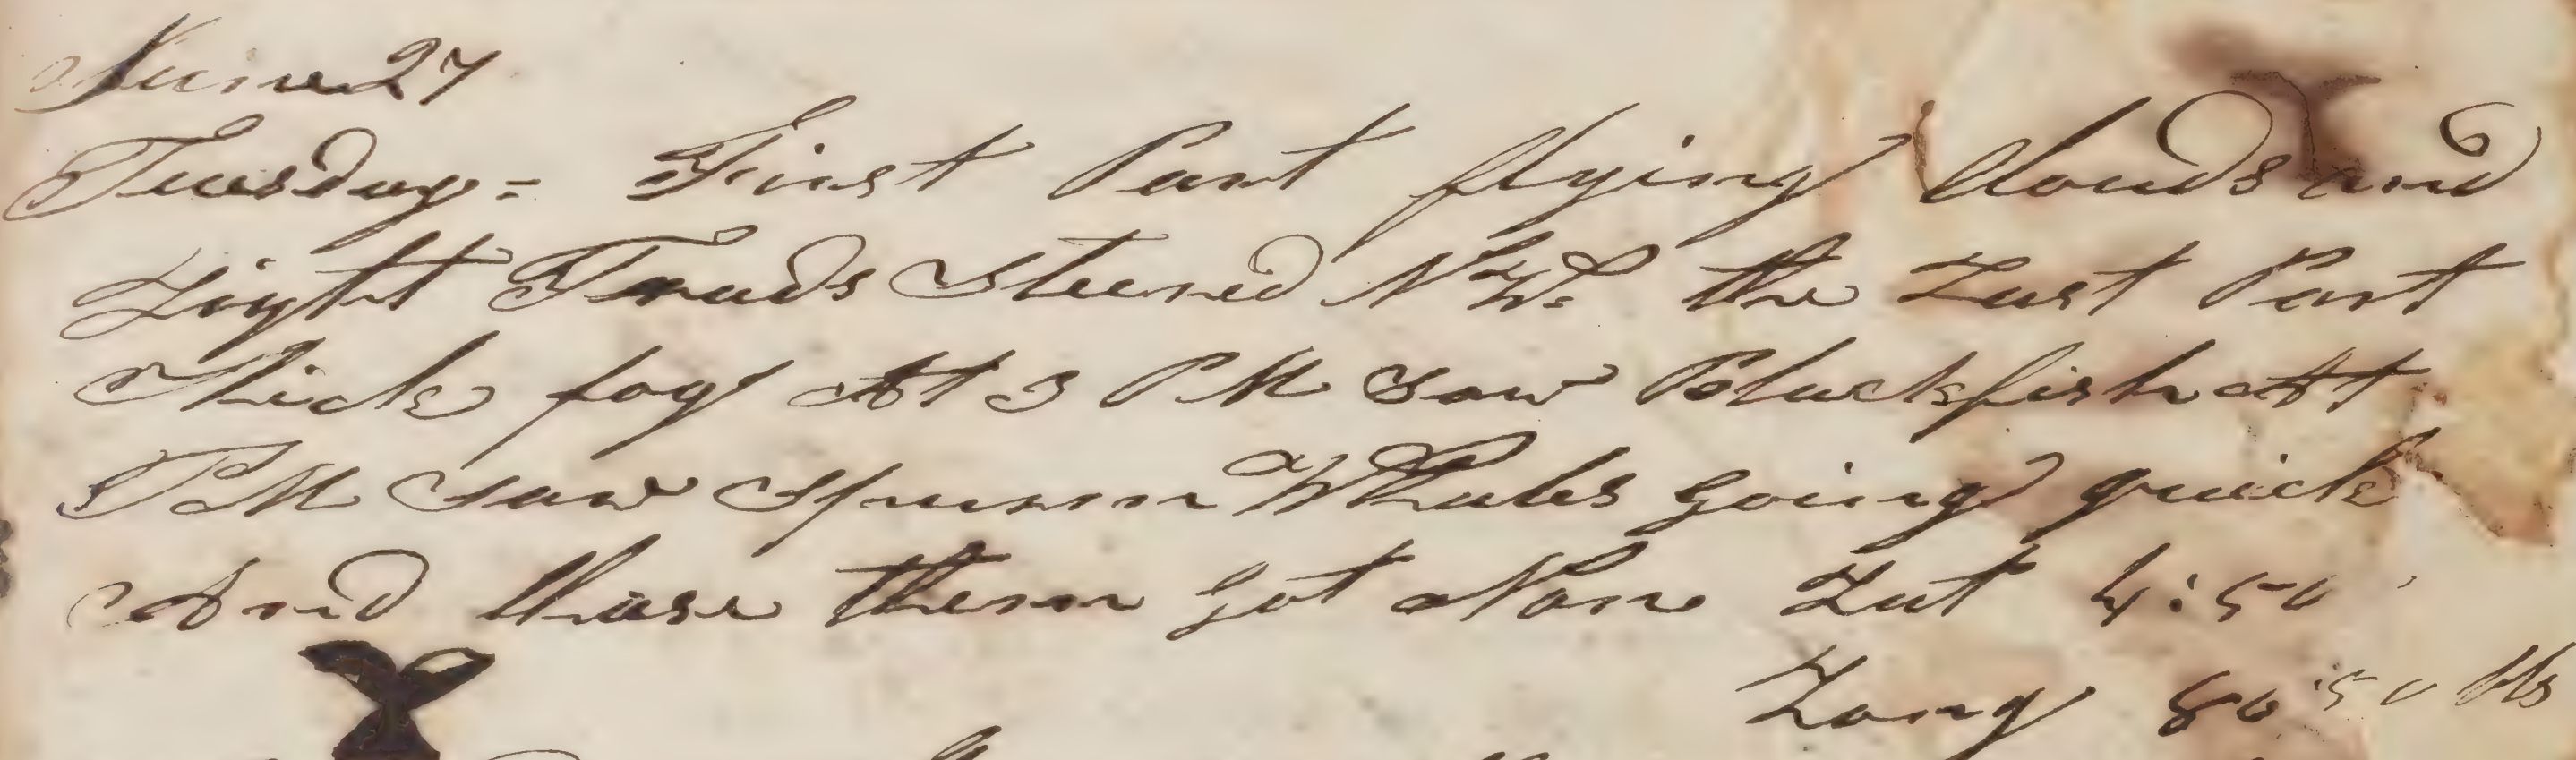 June 27
Tuesday = First Part flying Clouds and
Light Trads Steered N W the Last Part
Thick fog At 3 PM Saw Blackfish At
PM Saw Spurm Whales going quick
And Chase them got Non Lat 4:50
Long 80:50